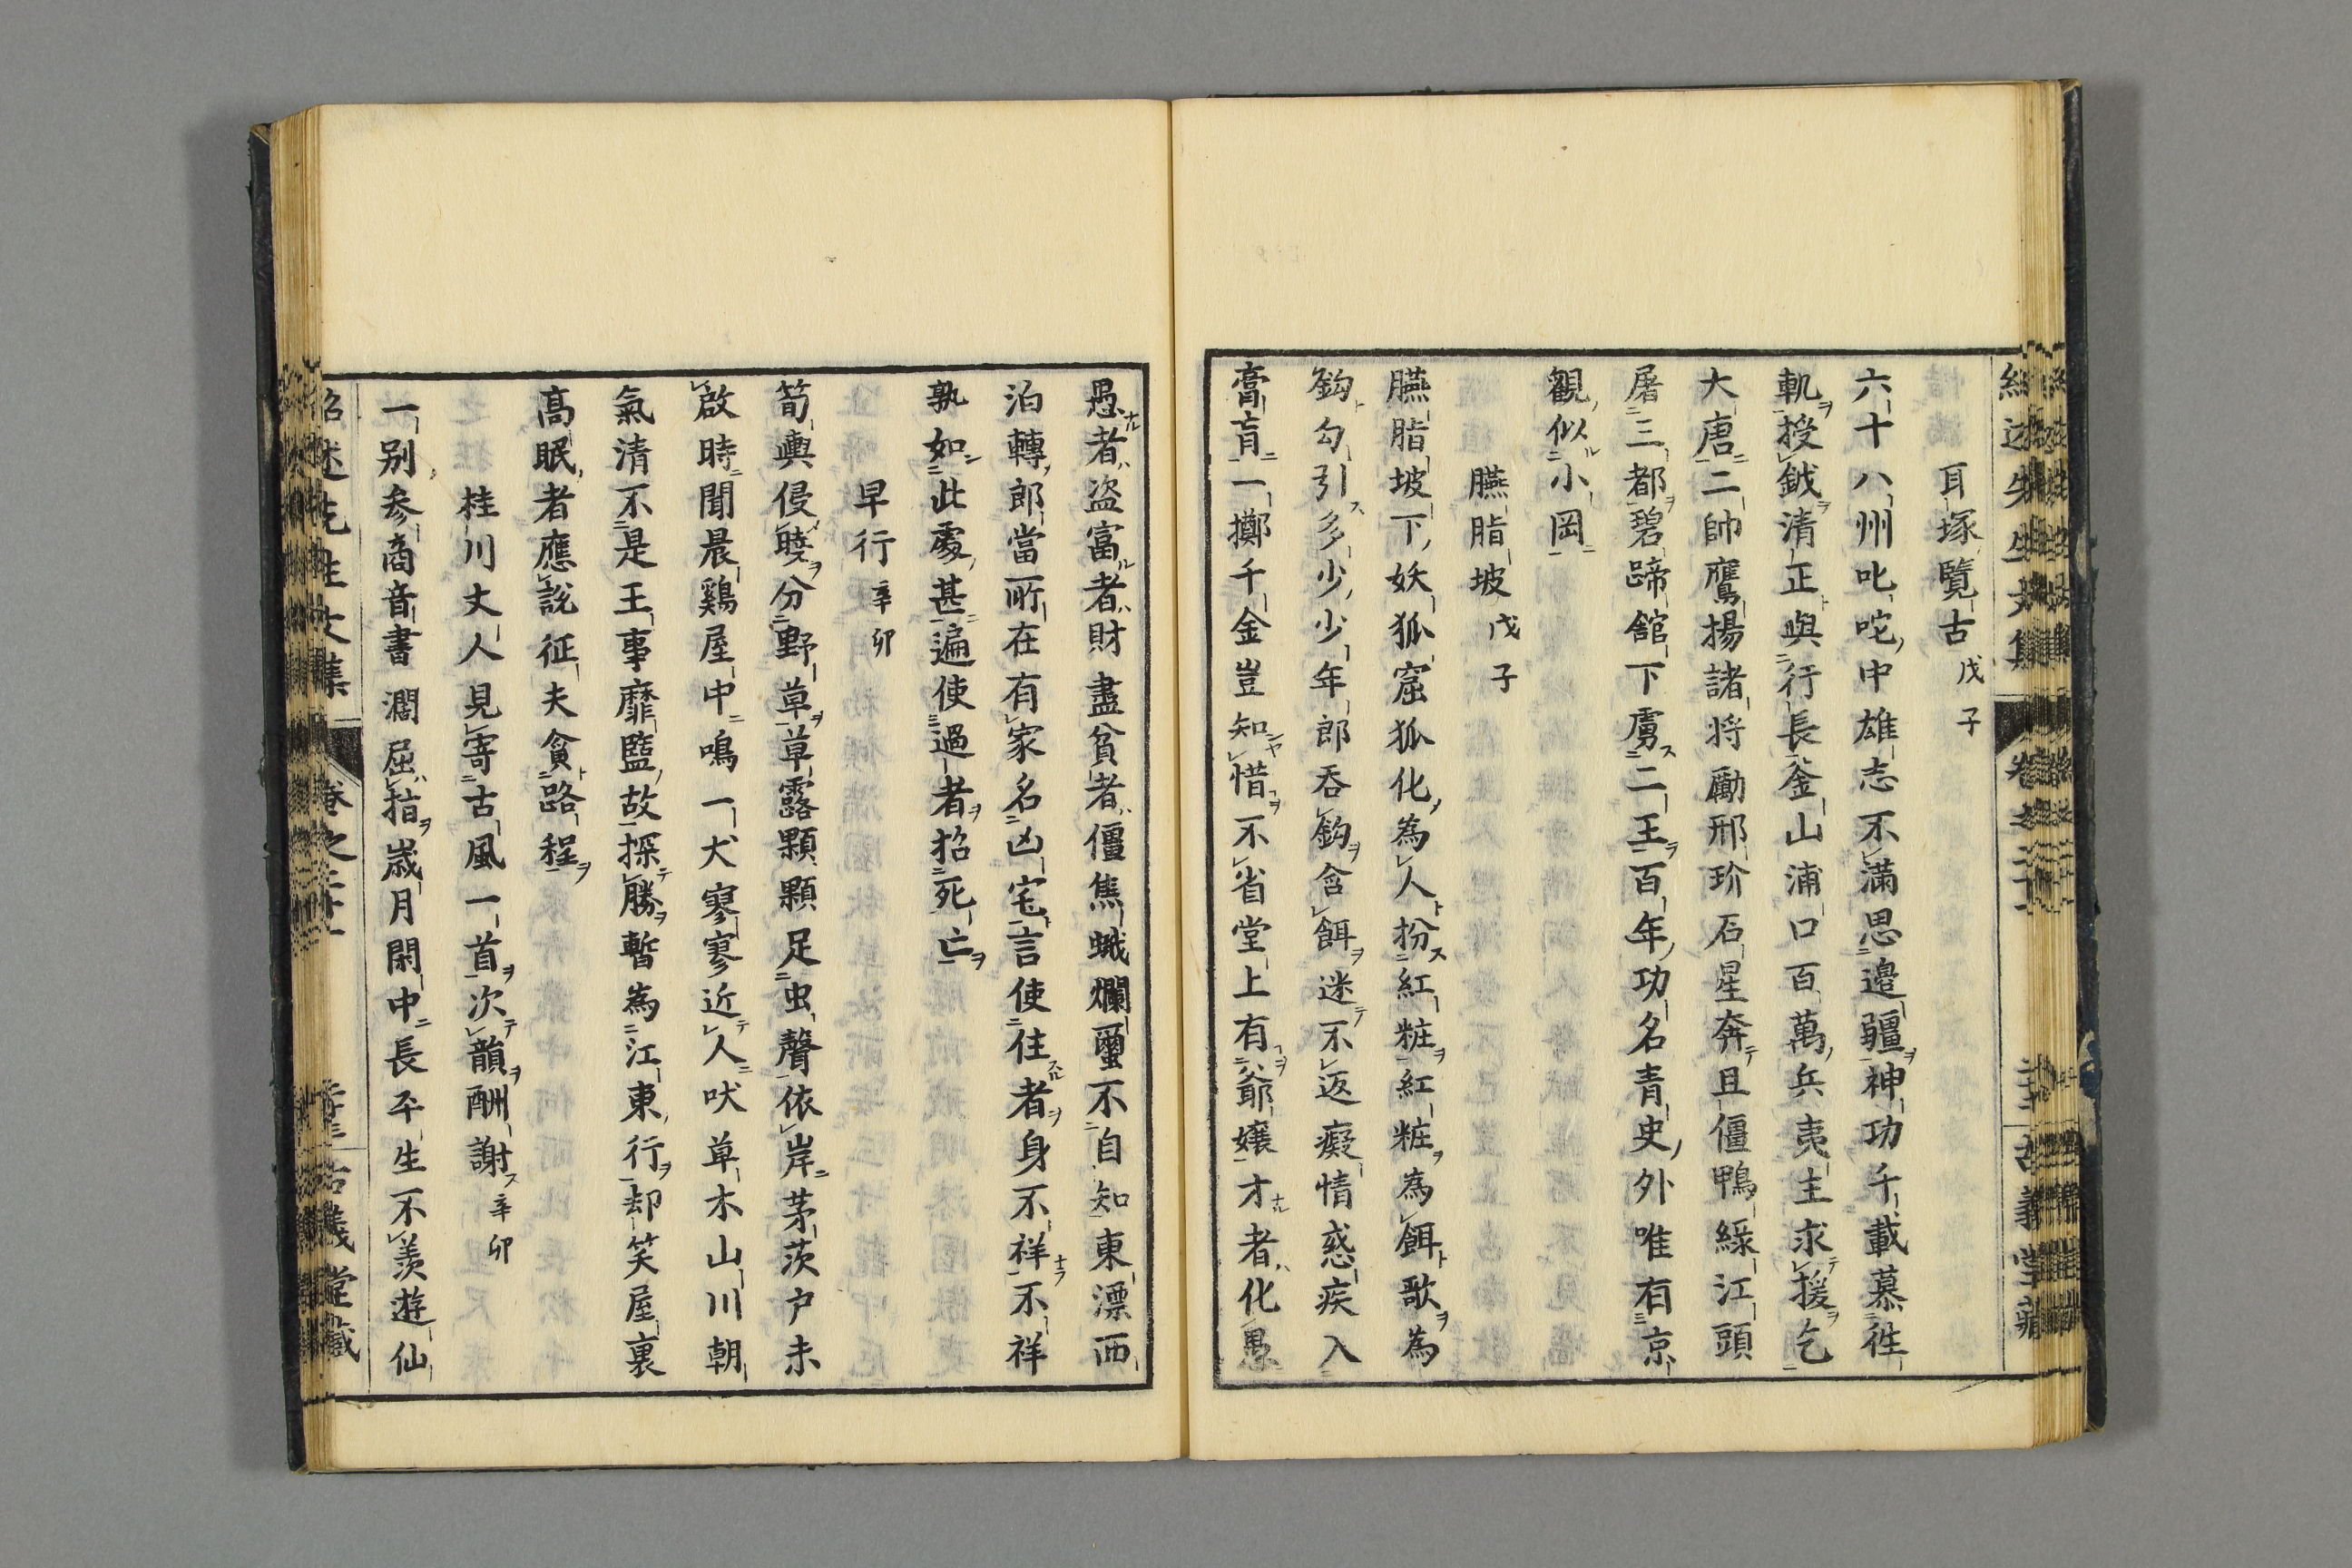 耳塚覽古戊子
六十八州叱咤中雄志不滿思邉疆神功千載慕徃
軌授鉞清正與行長釜山浦口百萬兵夷主求援乞
大唐二帥鷹揚諸將勵邢玠石星奔且僵鴨綠江頭
屠三都碧蹄舘下虜二王百年功名青史外唯有京
觀似小岡
臙脂坡戊子
臙脂坡下妖狐窟狐化為人扮紅粧紅粧為餌歌為
鈎勾引多少少年郎吞鈎含餌迷不返癡情惑疾入
膏肓一擲千金豈知惜不省堂上有爺孃才者化愚
愚者盗富者財盡貧者僵焦蛾爛蠒不自知東漂西
泊轉郎當所在有家名凶宅言使住者身不祥不祥
孰如此處甚遍使過者招死亡
早行辛卯
筍輿侵曉分野草草露顆顆足虫聲依岸茅茨户未
啟時聞晨鷄屋中鳴一犬寥寥近人吠草木山川朝
氣清不是王事靡盬故探勝暫為江東行却笑屋裏
高眠者應說征夫貪路程
桂川丈人見寄古風一首次韻酬謝辛卯
一别参商音書濶屈指歳月閑中長平生不羨遊仙
紹述先生文集
卷之二十
古義堂藏